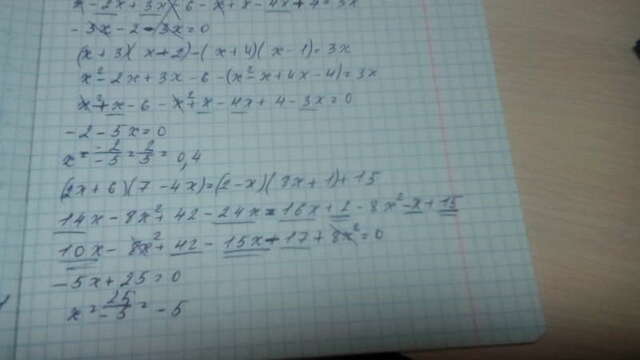 x² - 2x + 3x - 6 - x² + x - 4x + 4 = 3x
- 3x - 2 - 3x = 0
(x + 3)(x - 2) - (x + 4)(x - 1) = 3x
x² - 2x + 3x - 6 - (x² - x + 4x - 4) = 3x
x² + x - 6 - x² + x - 4x + 4 - 3x = 0
- 2 - 5x = 0
x = -2/-5 = 2/5 = 0,4
(2x + 6)(7 - 4x) = (2 - x)(8x + 1) + 15
14x - 8x² + 42 - 24x = 16x + 2 - 8x² - x + 15
10x - 8x² + 42 - 15x - 17 + 8x² = 0
- 5x + 25 = 0
x = 25/-5 = - 5